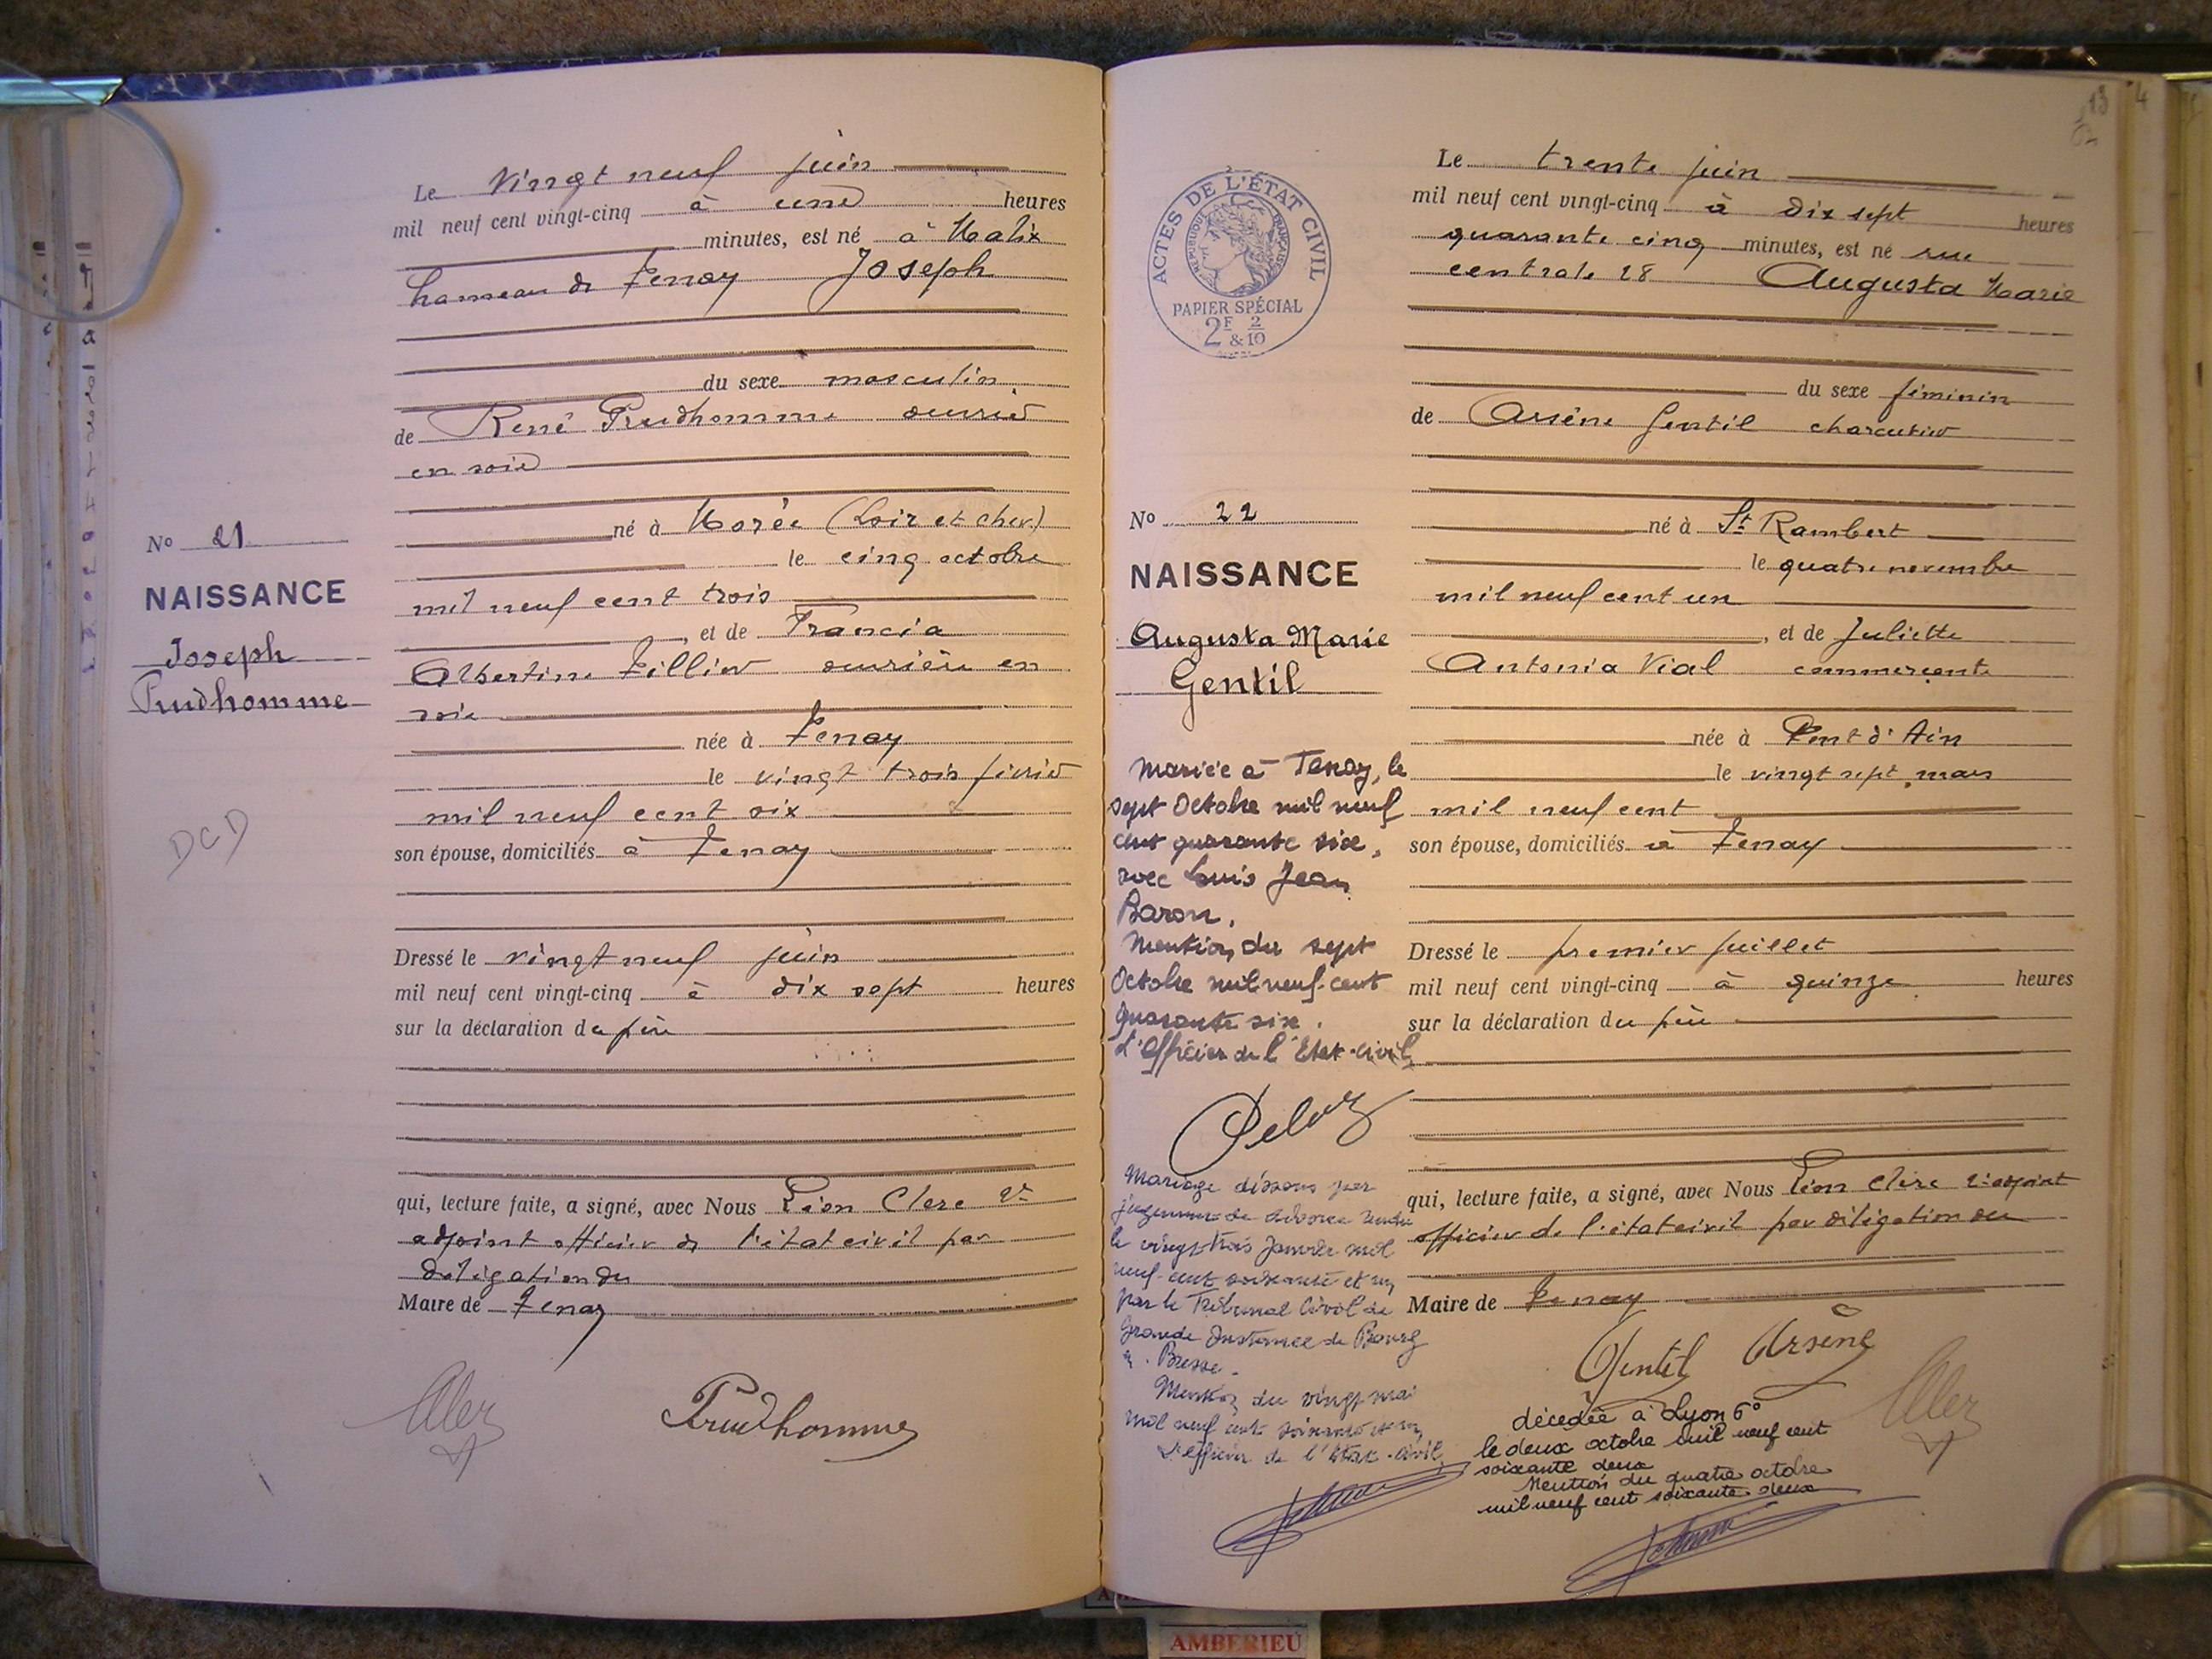 Le vingt neuf juin
mil neuf cent vingt-cinq à une heures
minutes, est né à Malix
hameau de Tenay Joseph
du sexe masculin
de René Prudhomme ouvrier
en soie
né à Morée (Loir et Cher)
le cinq octobre
mil neuf cent trois
, et de Francia
Albertine Tillier ouvrière en
soie
née à Tenay
le vingt trois février
mil neuf cent six
son épouse, domiciliés à Tenay
Dressé le vingt neuf juin
mil neuf cent vingt-cinq à dix sept heures
sur la déclaration du père
qui, lecture faite, a signé, avec Nous Léon Clerc 2e
adjoint officier de l'état civil par
délégation du
Maire de Tenay
Prudhomme
No 21
NAISSANCE
Joseph
Prudhomme
DCD
13
4
ACTES DE L'ÉTAT CIVIL
RÉPUBLIQUE FRANÇAISE
PAPIER SPÉCIAL
2F & 2/10
Le trente juin
mil neuf cent vingt-cinq à dix sept heures
quarante cinq minutes, est né rue
centrale 28 Augusta Marie
du sexe féminin
de Arsène Gentil charcutier
né à St Rambert
le quatre novembre
mil neuf cent un
, et de Juliette
Antonia Vial commerçante
née à Pont d'Ain
le vingt sept mars
mil neuf cent
son épouse, domiciliés à Tenay
Dressé le premier juillet
mil neuf cent vingt-cinq à quinze heures
sur la déclaration du père
qui, lecture faite, a signé, avec Nous Léon Clerc 2e adjoint
officier de l'état civil par délégation du
Maire de Tenay
Gentil Arsène
décédée à Lyon 6°
le deux octobre mil neuf cent
soixante deux
Mention du quatre octobre
mil neuf cent soixante deux
No 22
NAISSANCE
Augusta Marie
Gentil
Mariée à Tenay, le
sept Octobre mil neuf
cent quarante six,
avec Louis Jean
Baron.
Mention du sept
Octobre mil neuf cent
Quarante six.
L'Officier de l'Etat-civil
Mariage dissous par
jugement de divorce rendu
le vingt-trois Janvier mil
neuf-cent soixante et un
par le Tribunal Civil de
Grande Instance de Bourg
en Bresse.
Mention du vingt mai
mil neuf cent soixante et un
L'officier de l'état-civil
AMBERIEU